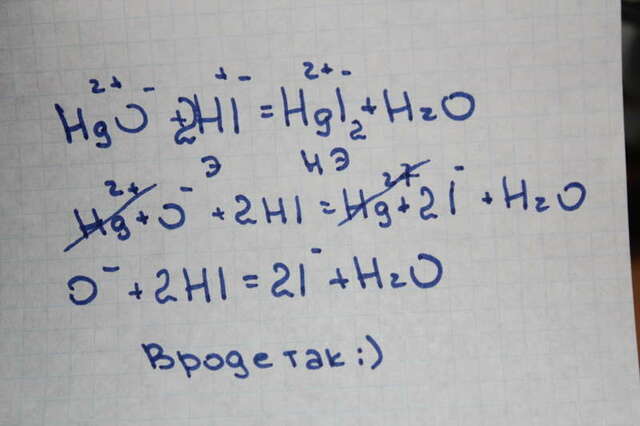 2+ - + - 2+ -
HgO + 2HI = HgI₂ + H₂O
Э НЭ
Hg²⁺ + O⁻ + 2HI = Hg²⁺ + 2I⁻ + H₂O
O⁻ + 2HI = 2I⁻ + H₂O
Вроде так :)